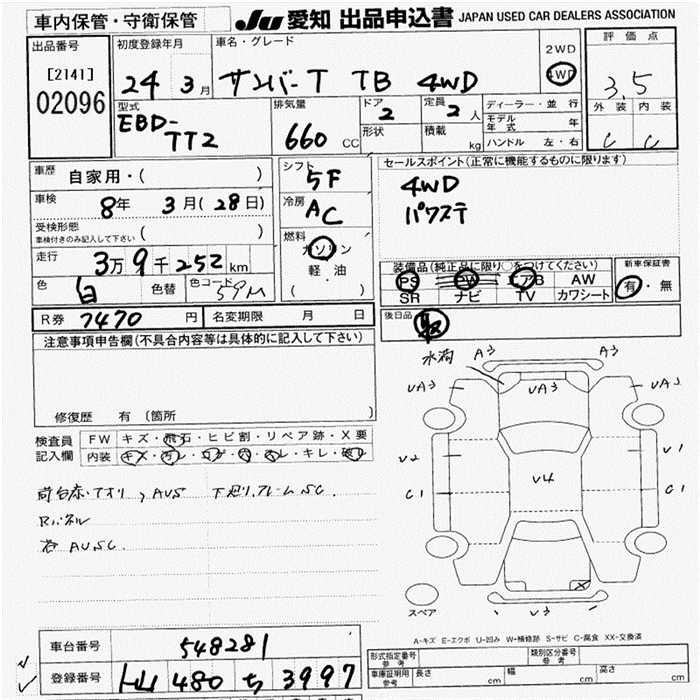 車内保管・守衛保管
JU 愛知 出品申込書 JAPAN USED CAR DEALERS ASSOCIATION
出品番号
[2141]
02096
初度登録年月
24年3月
車名・グレード
サンバーT TB 4WD
2WD
4WD
評価点
3.5
外装 内装
C C
型式
EBD-
TT2
排気量
660 CC
ドア
2
形状
定員
2人
積載
kg
ディーラー・並行
モデル年式 年
ハンドル 左・右
車歴
自家用・( )
車検
8年3月(28日)
受検形態
車検付きのみ記入して下さい ( )
走行
3万9千252km
色
白
色替
色コード
59M
R券 7470円
名変期限 月 日
シフト
5F
冷房
AC
燃料
ガソリン
軽・油
( )
セールスポイント(正常に機能するものに限ります)
4WD
パワステ
装備品(純正品に限り○をつけてください)
PS PW エアB AW
SR ナビ TV カワシート
新車保証書
有・無
後日品
注意事項申告欄(不具合内容等は具体的に記入して下さい)
修復歴 有 〔箇所 〕
検査員
記入欄
FW キズ・飛石・ヒビ割・リペア跡・X要
内装 キズ・汚レ・コゲ・穴・スレ・キレ・破レ
AUS
下廻り、フレームSC.
Rパネル
AUSC.
A3 A3
UA3 UA3 UA3
U2 U1
C1 U4 C1
X
U3
スペア
A-キズ E-エクボ U-凹み W-補修跡 S-サビ C-腐食 XX-交換済
車台番号
548281
登録番号
480 ち 3997
形式指定番号
参考
類別区分番号
参考
車庫証明用
参考
長さ cm
幅 cm
高さ cm